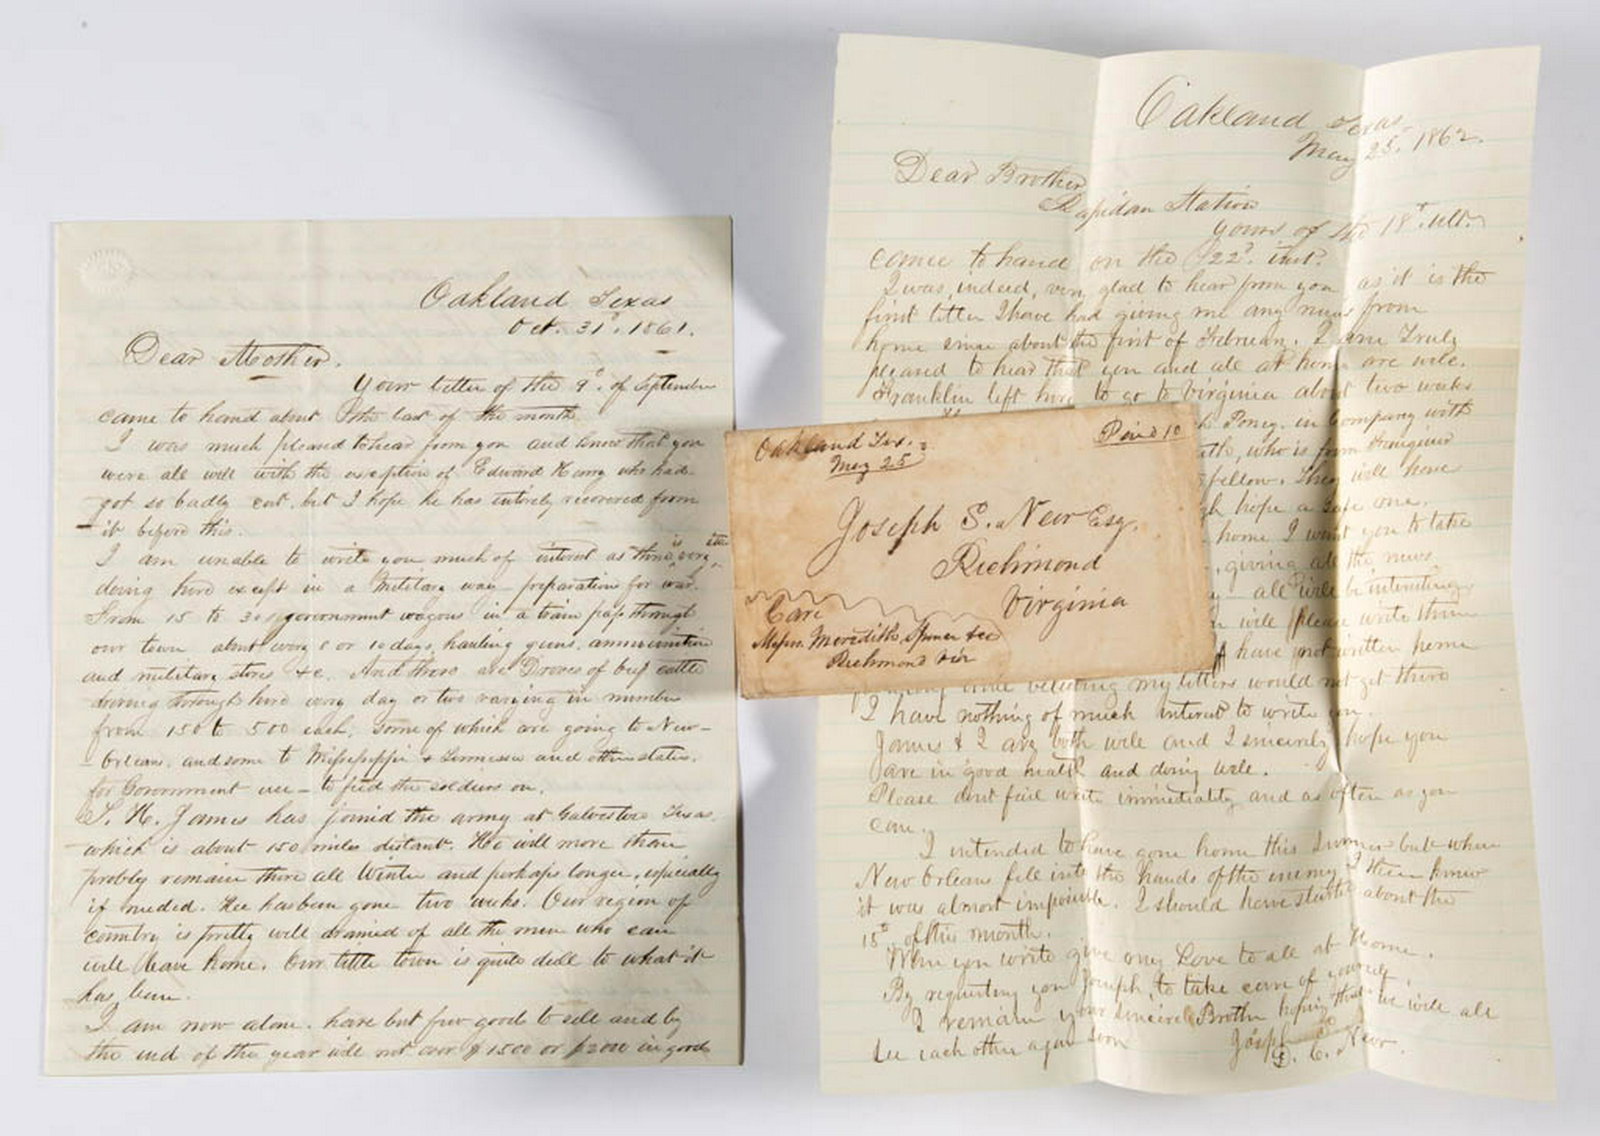 Oakland Texas
Oct. 31st. 1861.
Dear Mother.
Your letter of the 9th. of September
came to hand about the last of the month
I was much pleased to hear from you and know that you
were all well with the exception of Edward Henry who had
got so badly cut. but I hope he has entirely recovered from
it before this.
I am unable to write you much of interest as there is very little
doing here except in a Military way preparations for war.
From 15 to 30 government wagons in a train pass through
our town about every 8 or 10 days, hauling guns, ammunition
and military stores &c. And there are Droves of beef cattle
driving through here every day or two varying in number
from 150 to 500 each, some of which are going to New-
Orleans, and some to Mississippi & Tennessee and other states.
for Government use - to feed the soldiers on.
S. H. James has joined the army at Galveston Texas.
which is about 150 miles distant. He will more than
probly remain there all Winter and perhaps longer, especially
if needed. Hee has been gone two weeks. Our region of
country is pretty well drained of all the men who can
well leave home. Our little town is quite dull to what it
has been.
I am now alone. have but few goods to sell and by
the end of the year will not over $1500 or $2000 in goods
Oakland Texas
May 25. 1862.
Dear Brother
Rapidan Station
Yours of the 18th. ult.
came to hand on the 22d. inst.
I was, indeed, very glad to hear from you as it is the
first letter I have had giving me any news from
home since about the first of February. I am Truly
pleased to hear that you and all at home are well.
Franklin left here to go to Virginia about two weeks
Poney. in Company with
who is from
fellow. They will have
hope a safe one.
home I want you to take
, giving all the news
all will be interesting
will please write them
I have not written home
my letters would not get there
I have nothing of much interest to write you.
James & I are both well and I sincerely hope you
are in good health and doing well.
Please dont fail write immediately and as often as you
can.
I intended to have gone home this Summer but when
New Orleans fell into the hands of the enemy I then knew
it was almost impossible. I should have started about the
15th of this month.
When you write give my Love to all at Home.
By requesting you Joseph, to take care of yourself.
I remain your sincere Brother hoping that we will all
see each other again soon
Joseph
C. New.
Oakland Tex.
May 25
Paid 10
Joseph S. New Esq.
Richmond
Virginia
Care
Messrs. Meredith, Spencer & Co
Richmond Vir